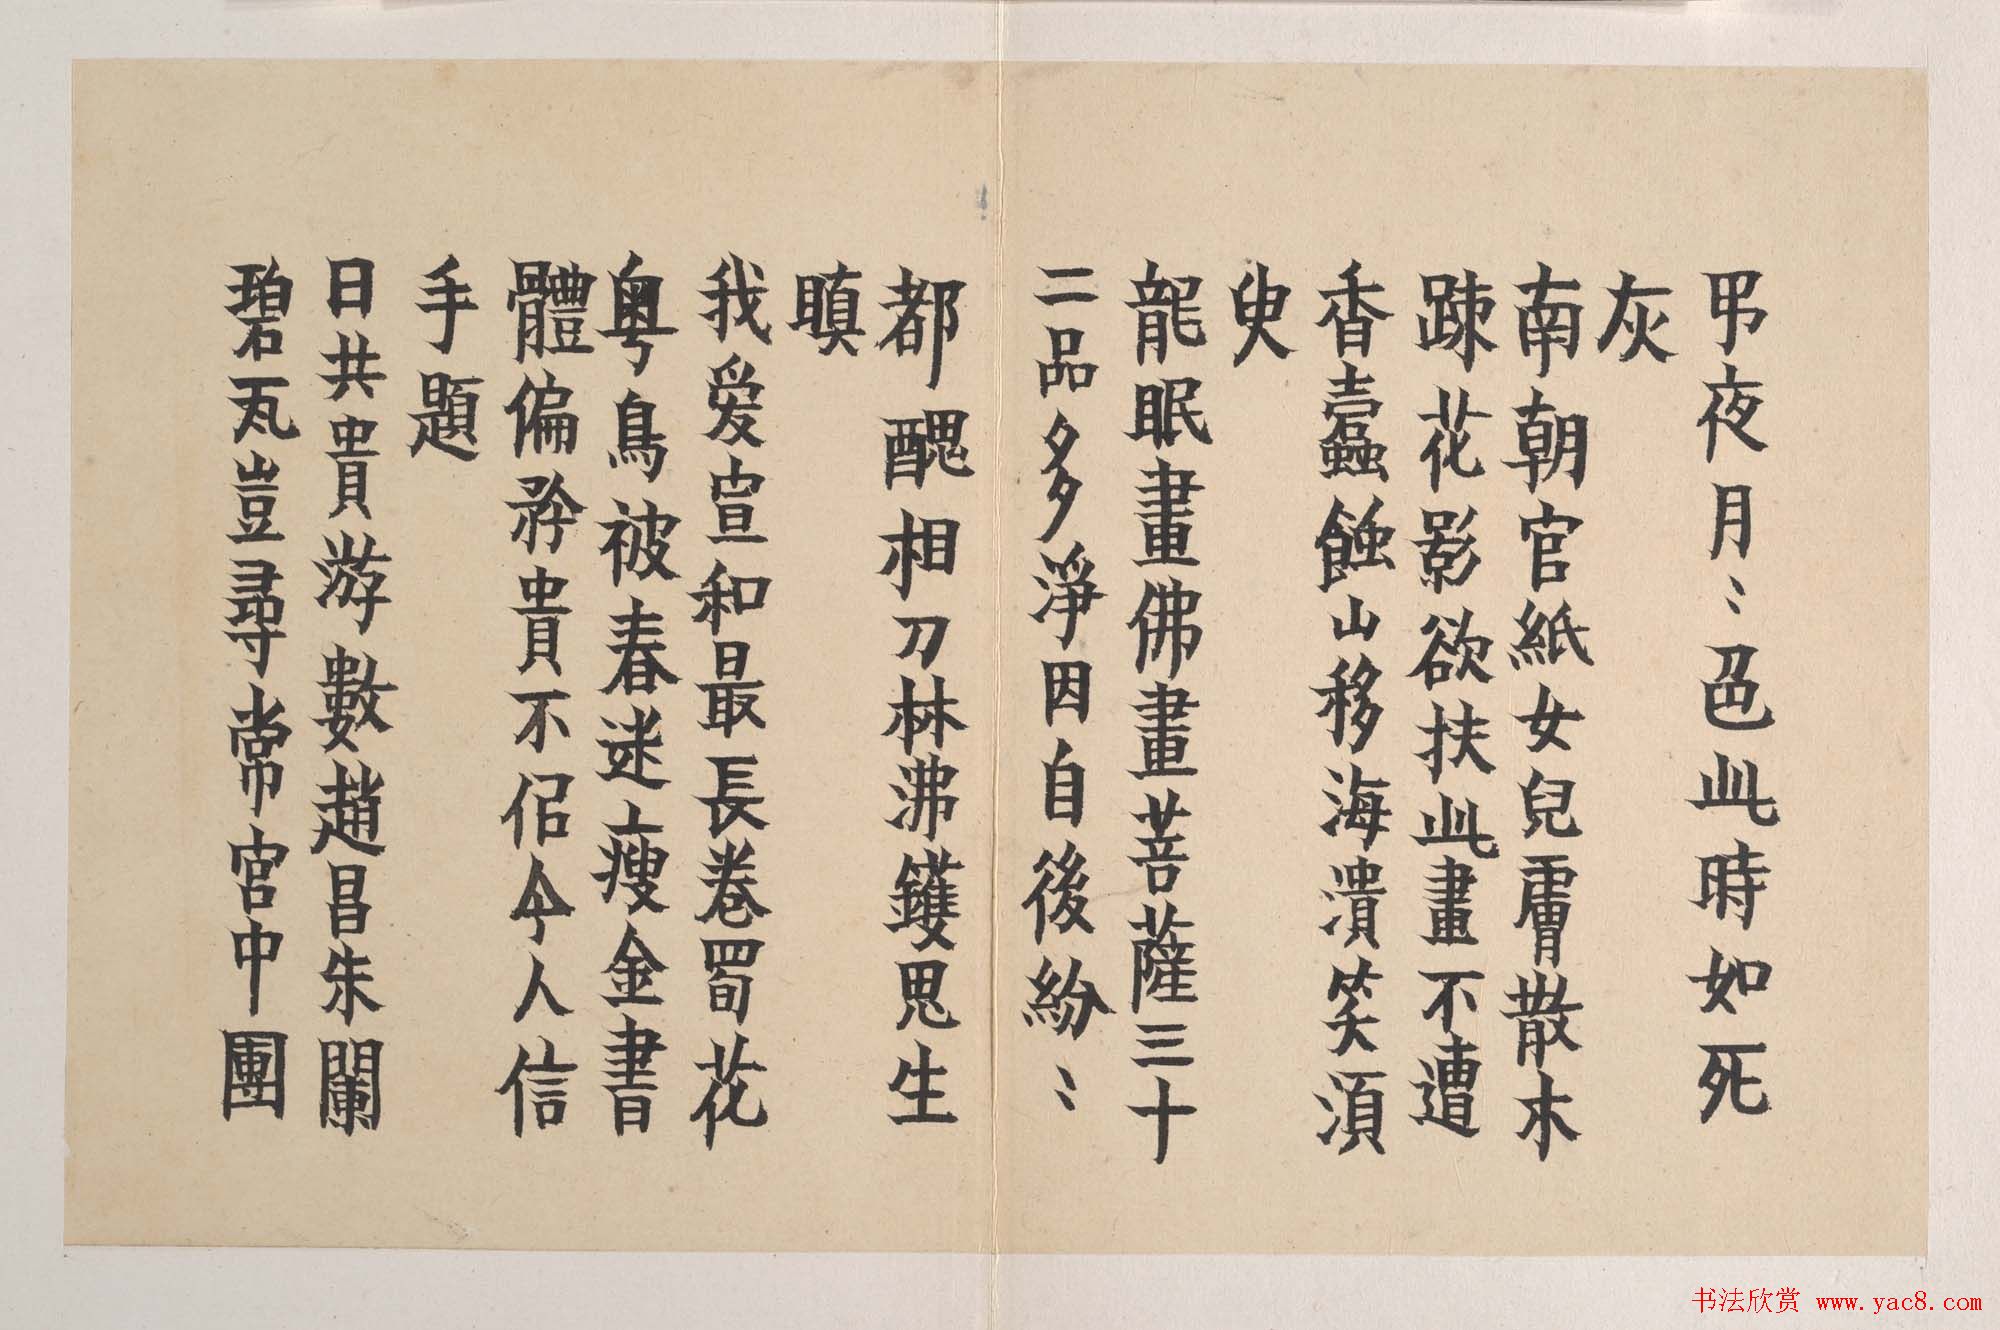 弔夜月〻色此時如死
灰
南朝官紙女兒膚散木
踈花影欲扶此畫不遭
香蠹蝕山移海潰笑須
臾
龍眠畫佛畫菩薩三十
二品多淨因自後紛〻
都醜相刀林沸鑊思生
瞋
我愛宣和最長卷蜀花
粵鳥被春迷瘦金書
體偏矜貴不佀今人信
手題
日共貴游數趙昌朱闌
碧瓦豈尋常宮中團
书法欣赏 www.yac8.com